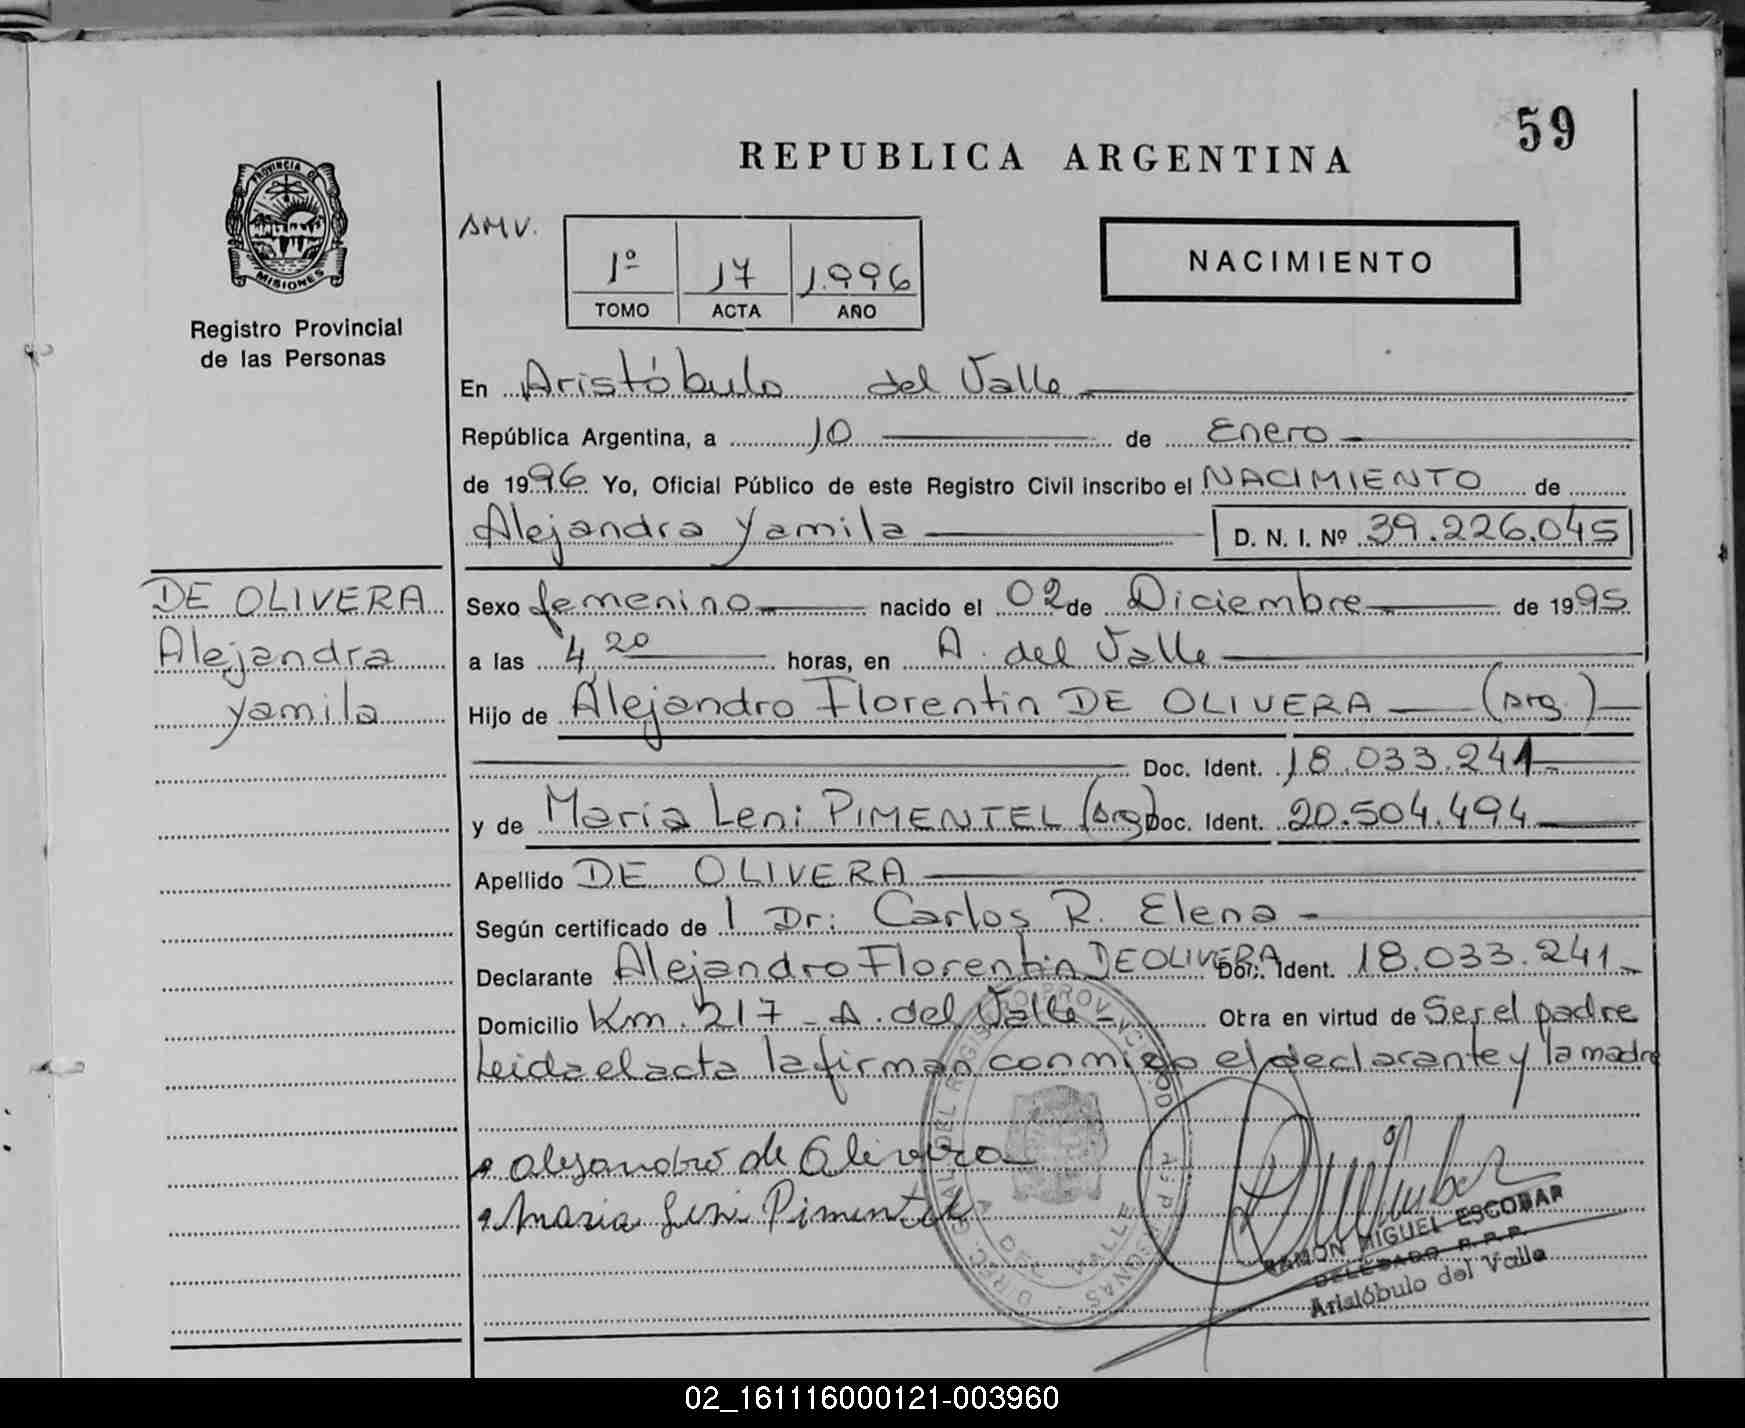 59
REPUBLICA ARGENTINA
PROVINCIA DE
MISIONES
Registro Provincial
de las Personas
AMV.
1º 17 1.996
TOMO ACTA AÑO
NACIMIENTO
En Aristóbulo del Valle
República Argentina, a 10 de Enero
de 1996 Yo, Oficial Público de este Registro Civil inscribo el NACIMIENTO de
Alejandra Yamila D. N. I. Nº 39.226.045
DE OLIVERA
Alejandra
Yamila
Sexo femenino nacido el 02 de Diciembre de 1995
a las 4 20 horas, en A. del Valle
Hijo de Alejandro Florentin DE OLIVERA (Arg.)
Doc. Ident. 18.033.241
y de Maria Leni PIMENTEL (Arg) Doc. Ident. 20.504.494
Apellido DE OLIVERA
Según certificado de Dr: Carlos R. Elena
Declarante Alejandro Florentin DE OLIVERA Doc. Ident. 18.033.241
Domicilio Km. 217 - A. del Valle - Obra en virtud de Ser el padre
Leida el acta la firman conmigo el declarante y la madre
Alejandro de Olivera
Maria Leni Pimentel
RAMON MIGUEL ESCOBAR
DELEGADO R.P.P.
Aristóbulo del Valle
02_161116000121-003960